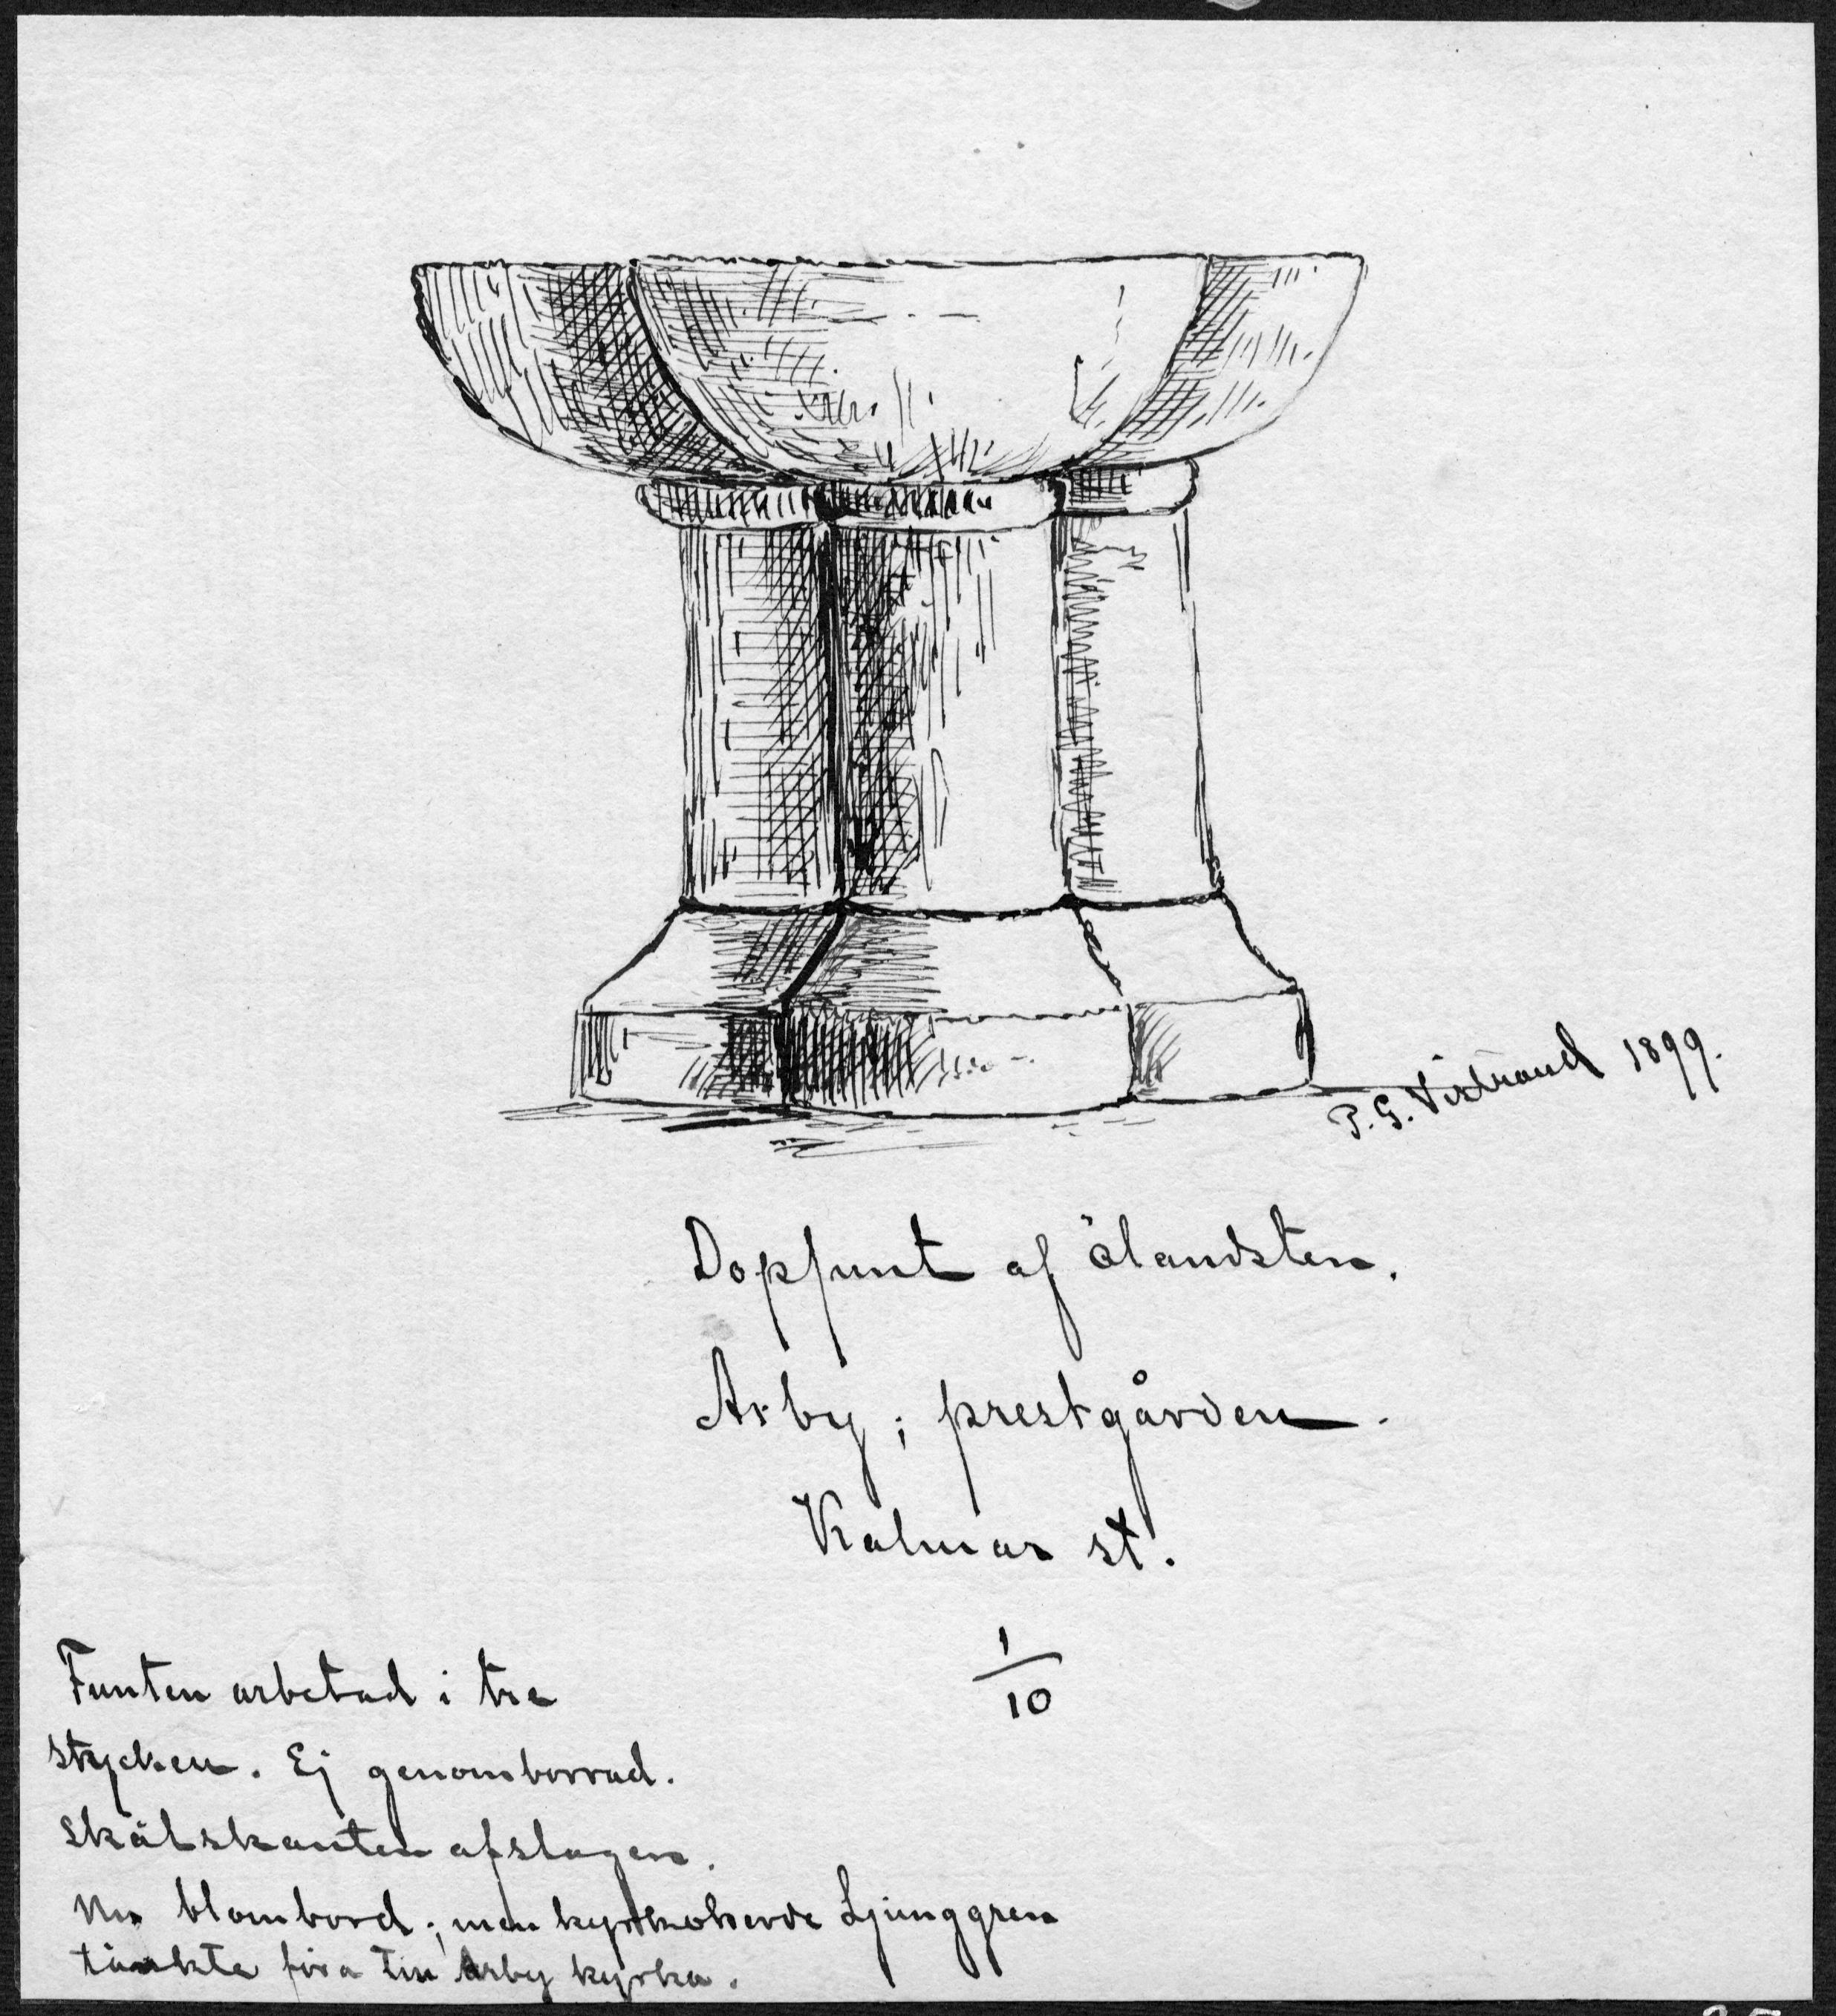 P. G. Vistrand 1899.
Dopfunt af ölandsten.
Arby; prestgården.
Kalmar st.
1/10
Funten arbetad i tre
stycken. Ej genomborrad.
Skålskanten afslagen.
Nu blombord; men kyrkoherde Ljunggren
tänkte föra till Arby kyrka.